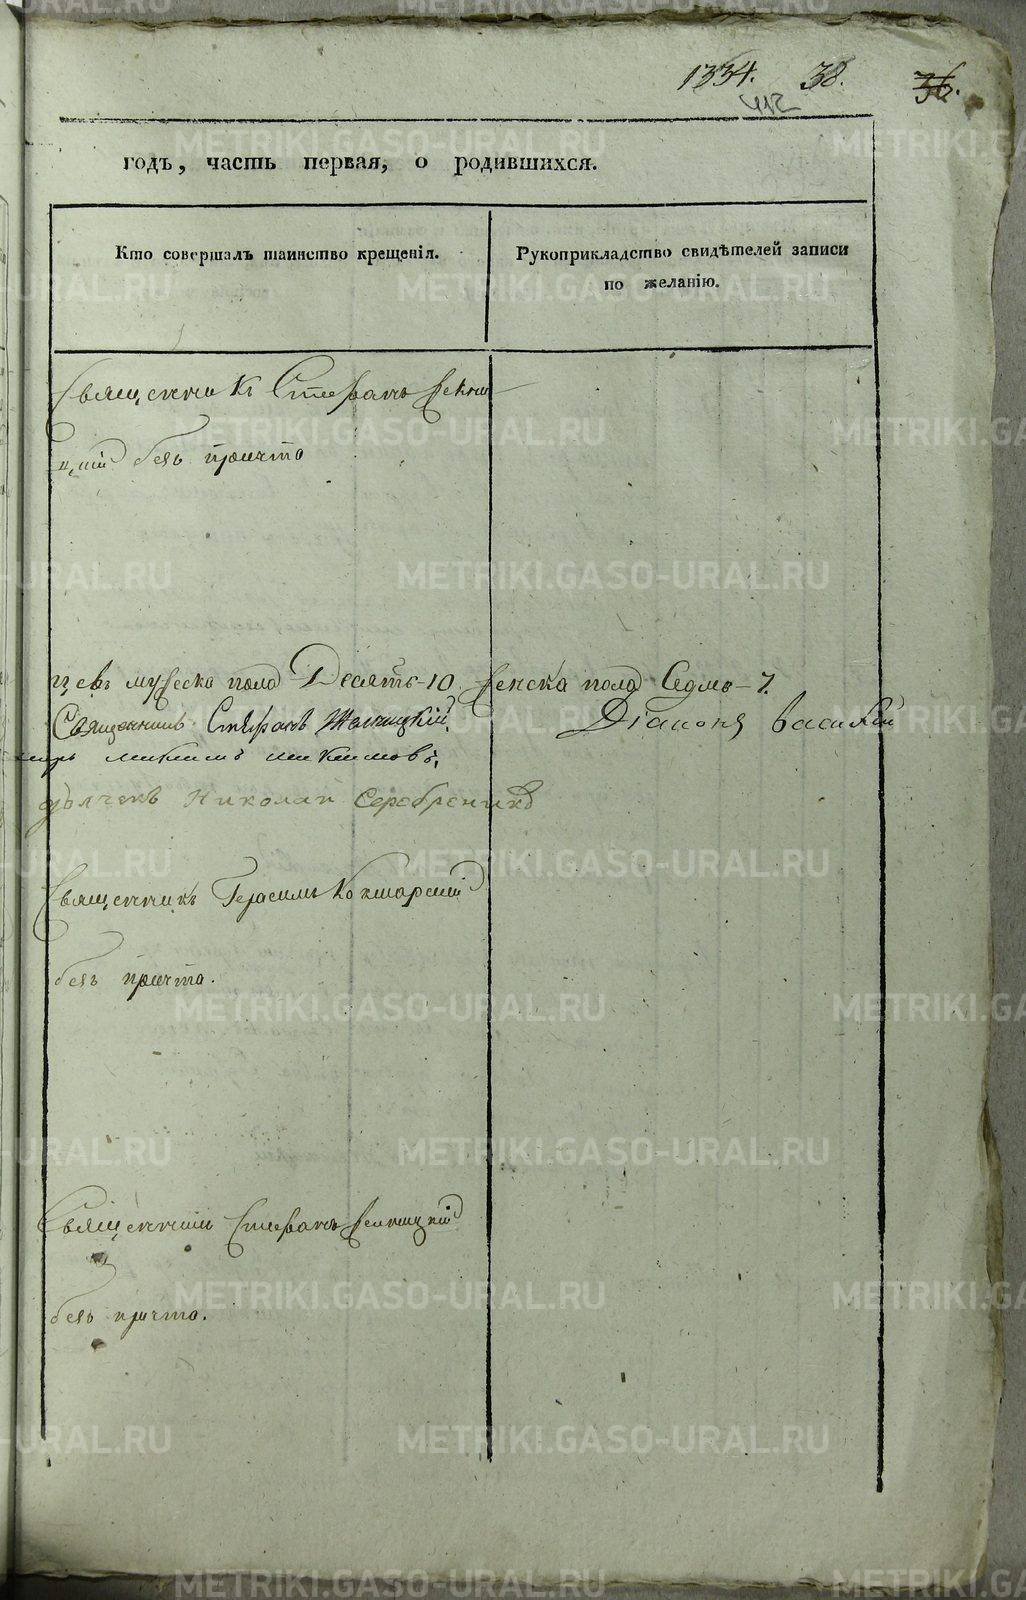 1334. 38. 36.
412
годъ, часть первая, о родившихся.
Кто совершалъ таинство крещенія.
Рукоприкладство свидѣтелей записи
по желанію.
Священникъ Стефанъ
без причта
муска пола Десять-10. женска пола Седмь-7.
Священникъ Стефанъ
Діаконъ Василей
Николай Серебрениковъ
Священникъ Герасимъ Кокшарскій
без причта.
Священникъ Стефанъ
без причта.
METRIKI.GASO-URAL.RU